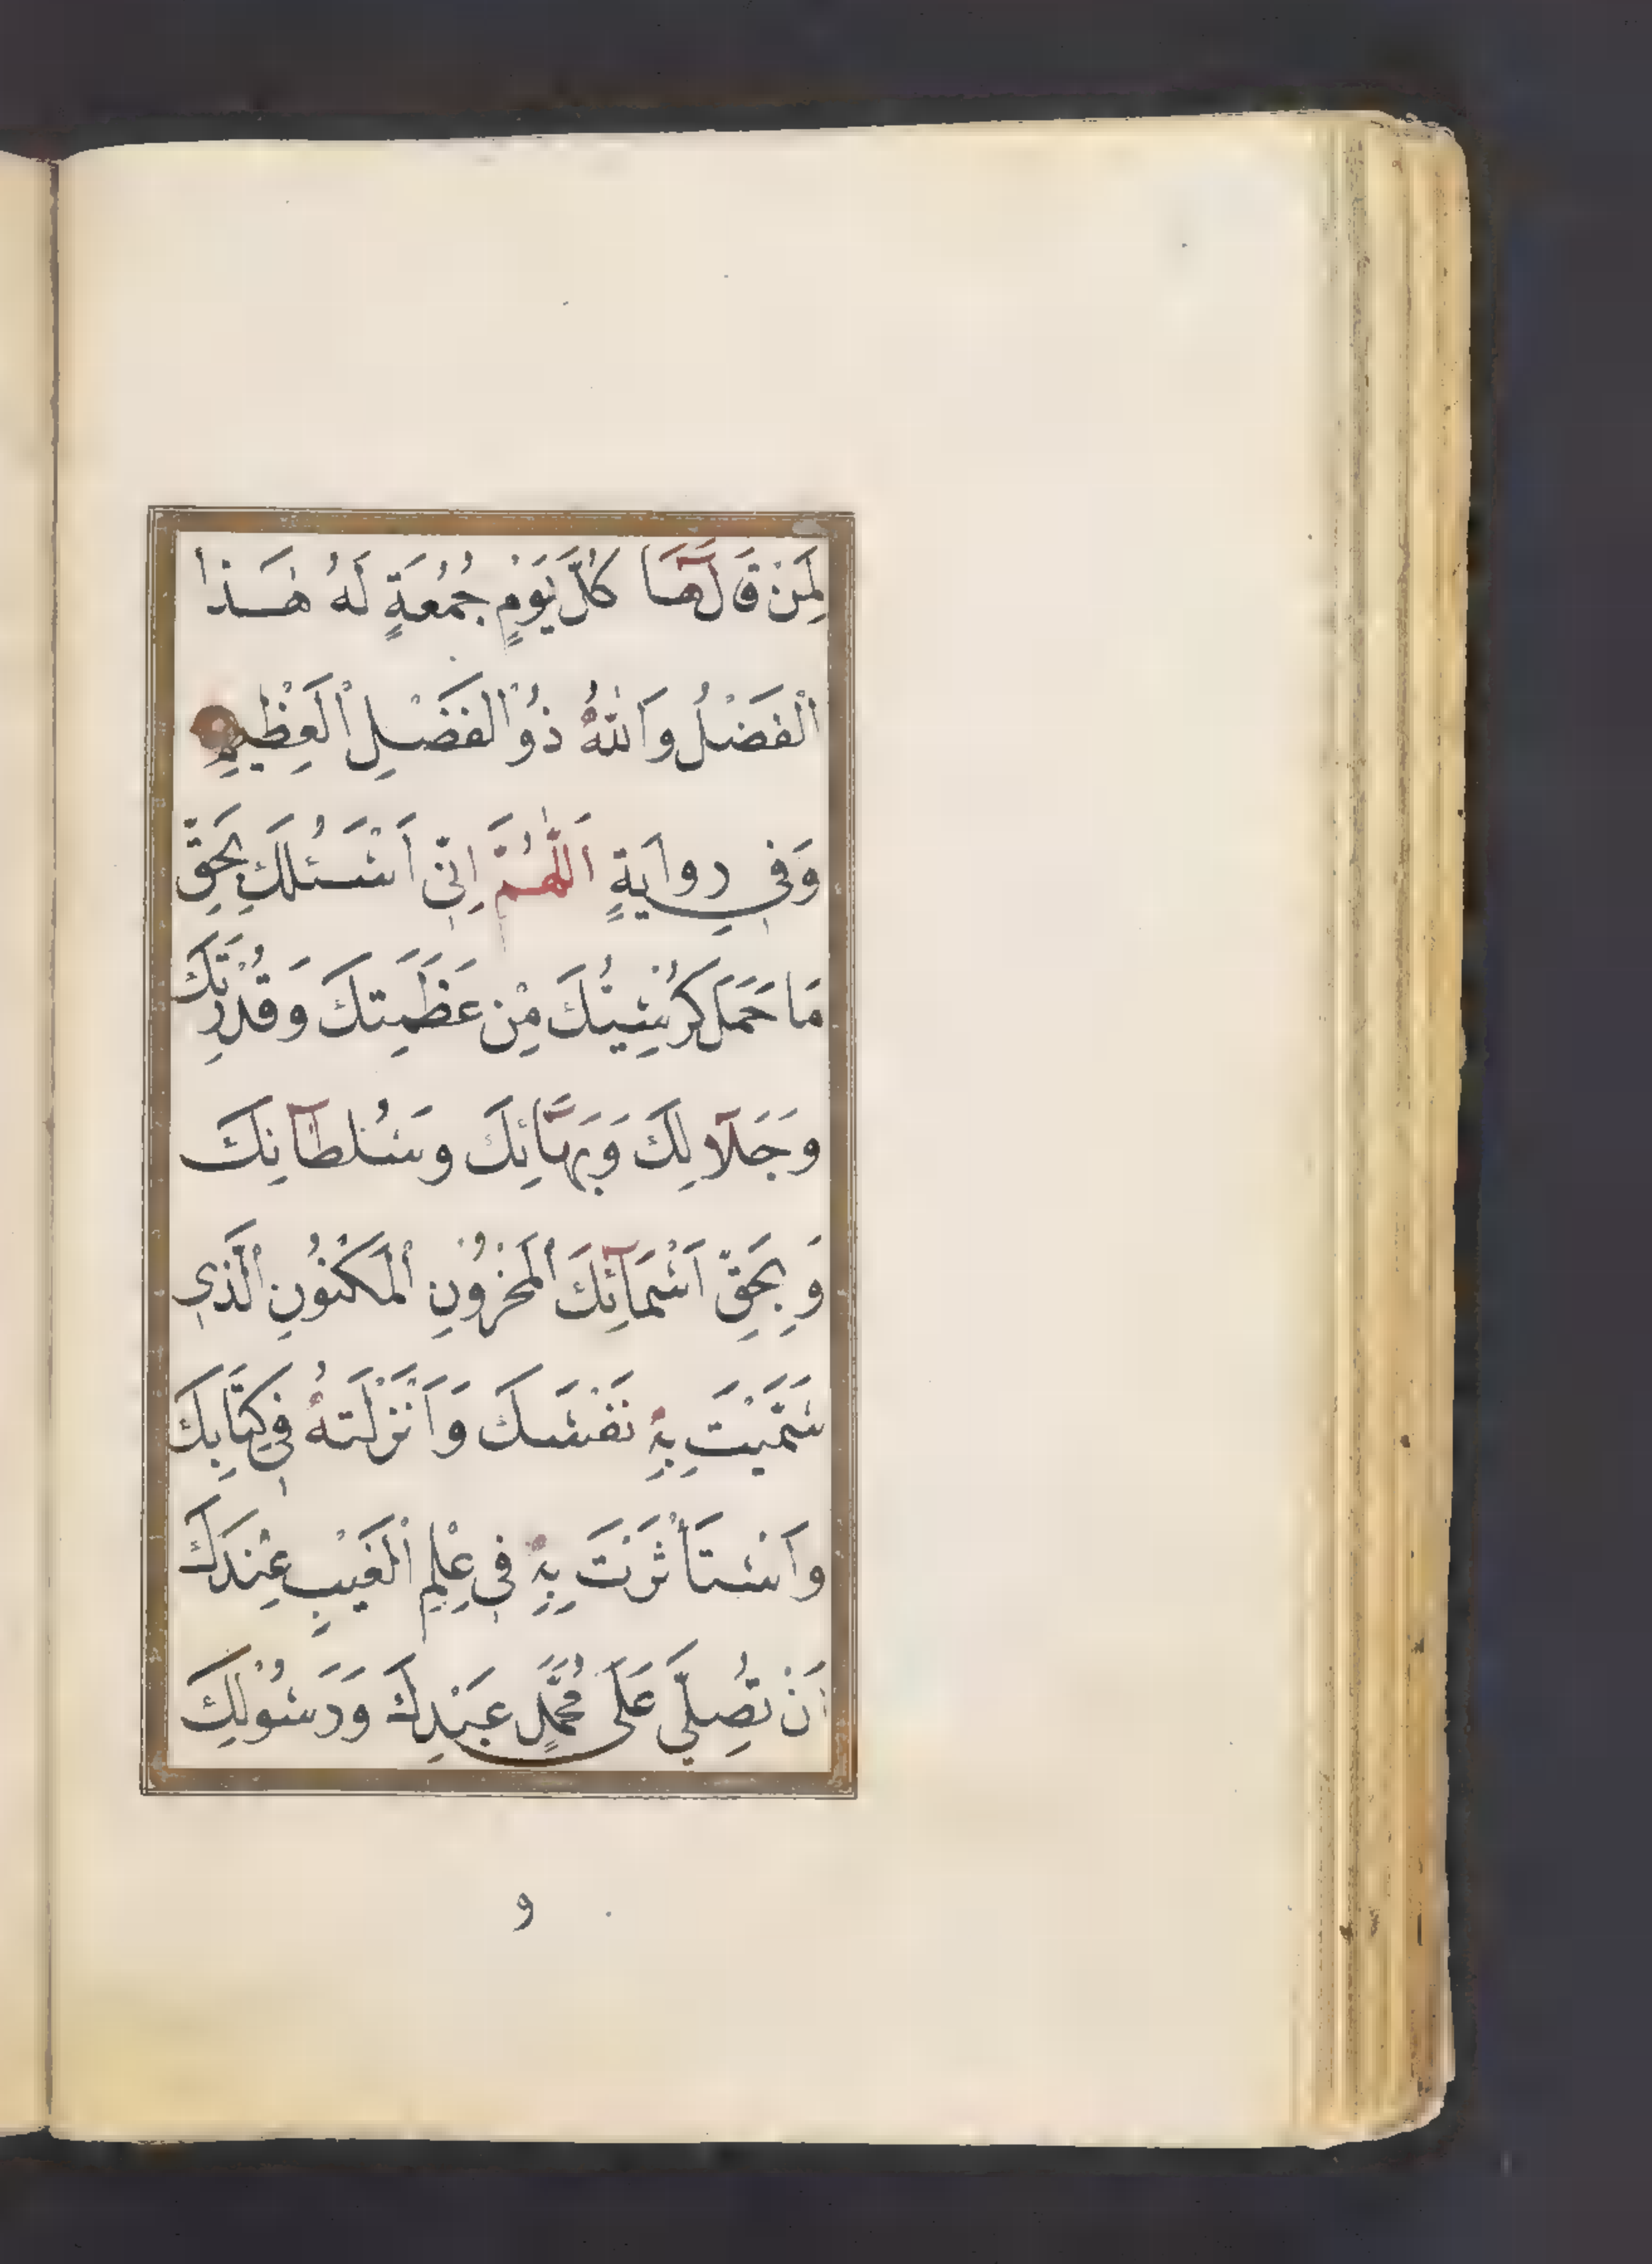 لِمَنْ قَالَهَا كُلَّ يَوْمِ جُمُعَةٍ لَهُ هٰذَا
الْفَضْلُ وَاللهُ ذُو الْفَضْلِ الْعَظِيمِ
وَفِي رِوَايَةٍ اَللّٰهُمَّ اِنِّي اَسْئَلُكَ بِحَقِّ
مَا حَمَلَ كُرْسِيُّكَ مِنْ عَظَمَتِكَ وَقُدْرَتِكَ
وَجَلَالِكَ وَبَهَائِكَ وَسُلْطَانِكَ
وَبِحَقِّ اَسْمَائِكَ الْمَخْزُونِ الْمَكْنُونِ الَّذِي
سَمَّيْتَ بِهِ نَفْسَكَ وَاَنْزَلْتَهُ فِي كِتَابِكَ
وَاسْتَأْثَرْتَ بِهِ فِي عِلْمِ الْغَيْبِ عِنْدَكَ
اَنْ تُصَلِّيَ عَلَى مُحَمَّدٍ عَبْدِكَ وَرَسُولِكَ
و